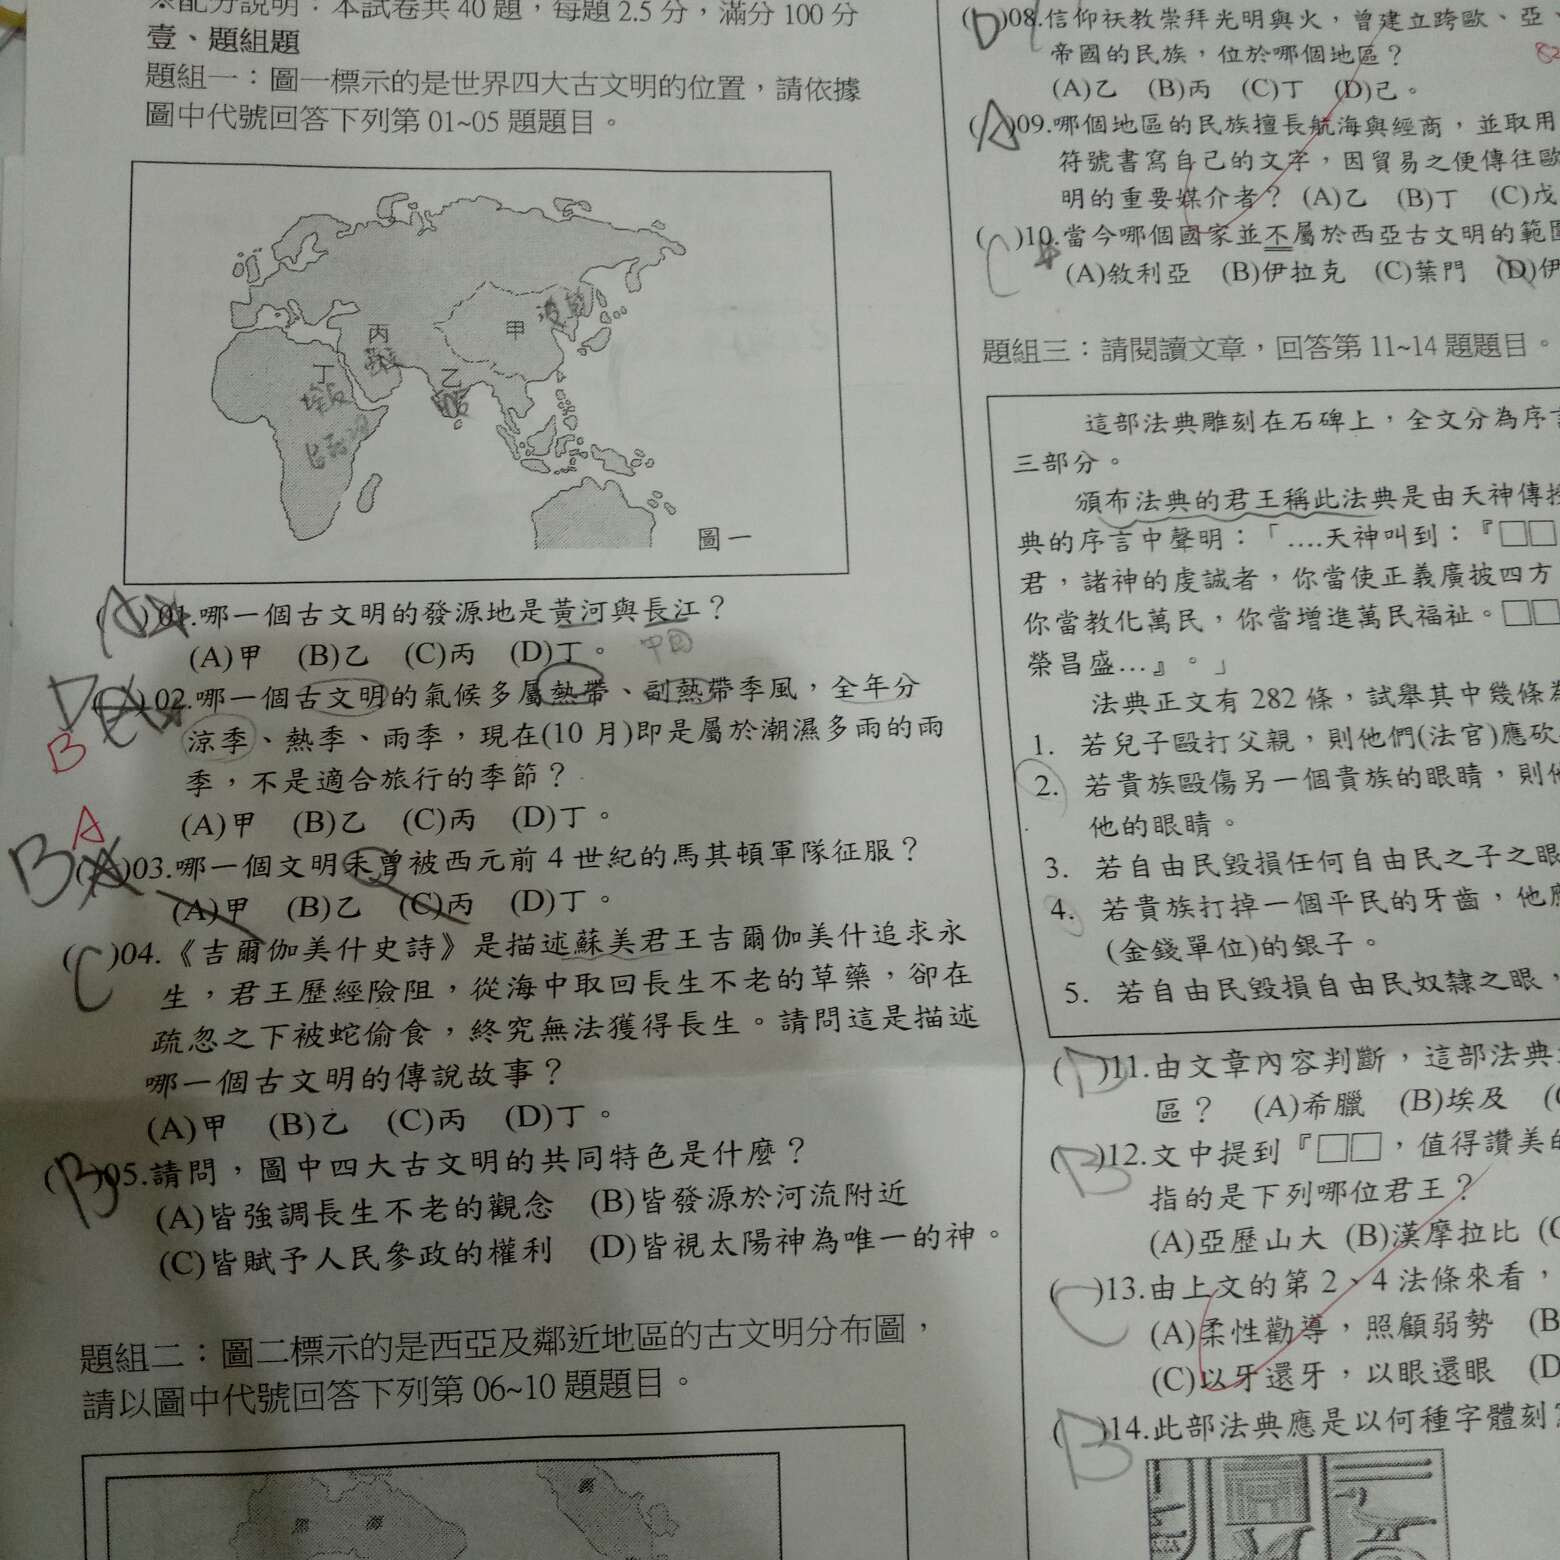 ※配分說明：本試卷共 40 題，每題 2.5 分，滿分 100 分
壹、題組題
題組一：圖一標示的是世界四大古文明的位置，請依據
圖中代號回答下列第 01~05 題題目。
丙
甲
丁
乙
圖一
( )01.哪一個古文明的發源地是黃河與長江？
(A)甲 (B)乙 (C)丙 (D)丁。
中国
D
( )02.哪一個古文明的氣候多屬熱帶、副熱帶季風，全年分
B
涼季、熱季、雨季，現在(10 月)即是屬於潮濕多雨的雨
季，不是適合旅行的季節？
(A)甲 (B)乙 (C)丙 (D)丁。
A
B
( )03.哪一個文明未曾被西元前 4 世紀的馬其頓軍隊征服？
(A)甲 (B)乙 (C)丙 (D)丁。
(C)04.《吉爾伽美什史詩》是描述蘇美君王吉爾伽美什追求永
生，君王歷經險阻，從海中取回長生不老的草藥，卻在
疏忽之下被蛇偷食，終究無法獲得長生。請問這是描述
哪一個古文明的傳說故事？
(A)甲 (B)乙 (C)丙 (D)丁。
(B)05.請問，圖中四大古文明的共同特色是什麼？
(A)皆強調長生不老的觀念 (B)皆發源於河流附近
(C)皆賦予人民參政的權利 (D)皆視太陽神為唯一的神。
題組二：圖二標示的是西亞及鄰近地區的古文明分布圖，
請以圖中代號回答下列第 06~10 題題目。
(D)08.信仰祆教崇拜光明與火，曾建立跨歐、亞、
帝國的民族，位於哪個地區？
(A)乙 (B)丙 (C)丁 (D)己。
(A)09.哪個地區的民族擅長航海與經商，並取用
符號書寫自己的文字，因貿易之便傳往歐
明的重要媒介者？ (A)乙 (B)丁 (C)戊
(C)10.當今哪個國家並不屬於西亞古文明的範圍
(A)敘利亞 (B)伊拉克 (C)葉門 (D)伊
題組三：請閱讀文章，回答第 11~14 題題目。
這部法典雕刻在石碑上，全文分為序言
三部分。
頒布法典的君王稱此法典是由天神傳授
典的序言中聲明：「....天神叫到：『□□
君，諸神的虔誠者，你當使正義廣披四方
你當教化萬民，你當增進萬民福祉。□□
榮昌盛...』。」
法典正文有 282 條，試舉其中幾條為
1. 若兒子毆打父親，則他們(法官)應砍
2. 若貴族毆傷另一個貴族的眼睛，則他
他的眼睛。
3. 若自由民毀損任何自由民之子之眼
4. 若貴族打掉一個平民的牙齒，他應
(金錢單位)的銀子。
5. 若自由民毀損自由民奴隸之眼，
(D)11.由文章內容判斷，這部法典
區？ (A)希臘 (B)埃及 (
(B)12.文中提到『□□，值得讚美的
指的是下列哪位君王？
(A)亞歷山大 (B)漢摩拉比 (C
(C)13.由上文的第 2、4 法條來看，
(A)柔性勸導，照顧弱勢 (B
(C)以牙還牙，以眼還眼 (D
(B)14.此部法典應是以何種字體刻